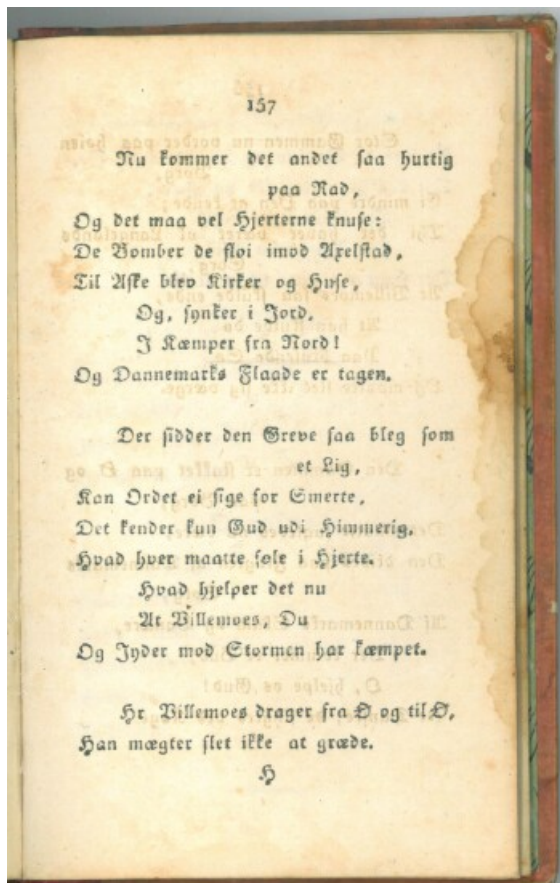 157
Nu kommer det andet saa hurtig
paa Rad,
Og det maa vel Hjerterne knuse:
De Bomber de fløi imod Axelstad,
Til Aske blev Kirker og Huse,
Og, synker i Jord,
I Kæmper fra Nord!
Og Dannemarks Flaade er tagen.
Der sidder den Greve saa bleg som
et Lig,
Kan Ordet ei sige for Smerte,
Det kender kun Gud udi Himmerig,
Hvad hver maatte føle i Hjerte.
Hvad hjelper det nu
At Villemoes, Du
Og Jyder mod Stormen har kæmpet.
Hr Villemoes drager fra Ø og til Ø,
Han mægter slet ikke at græde.
H